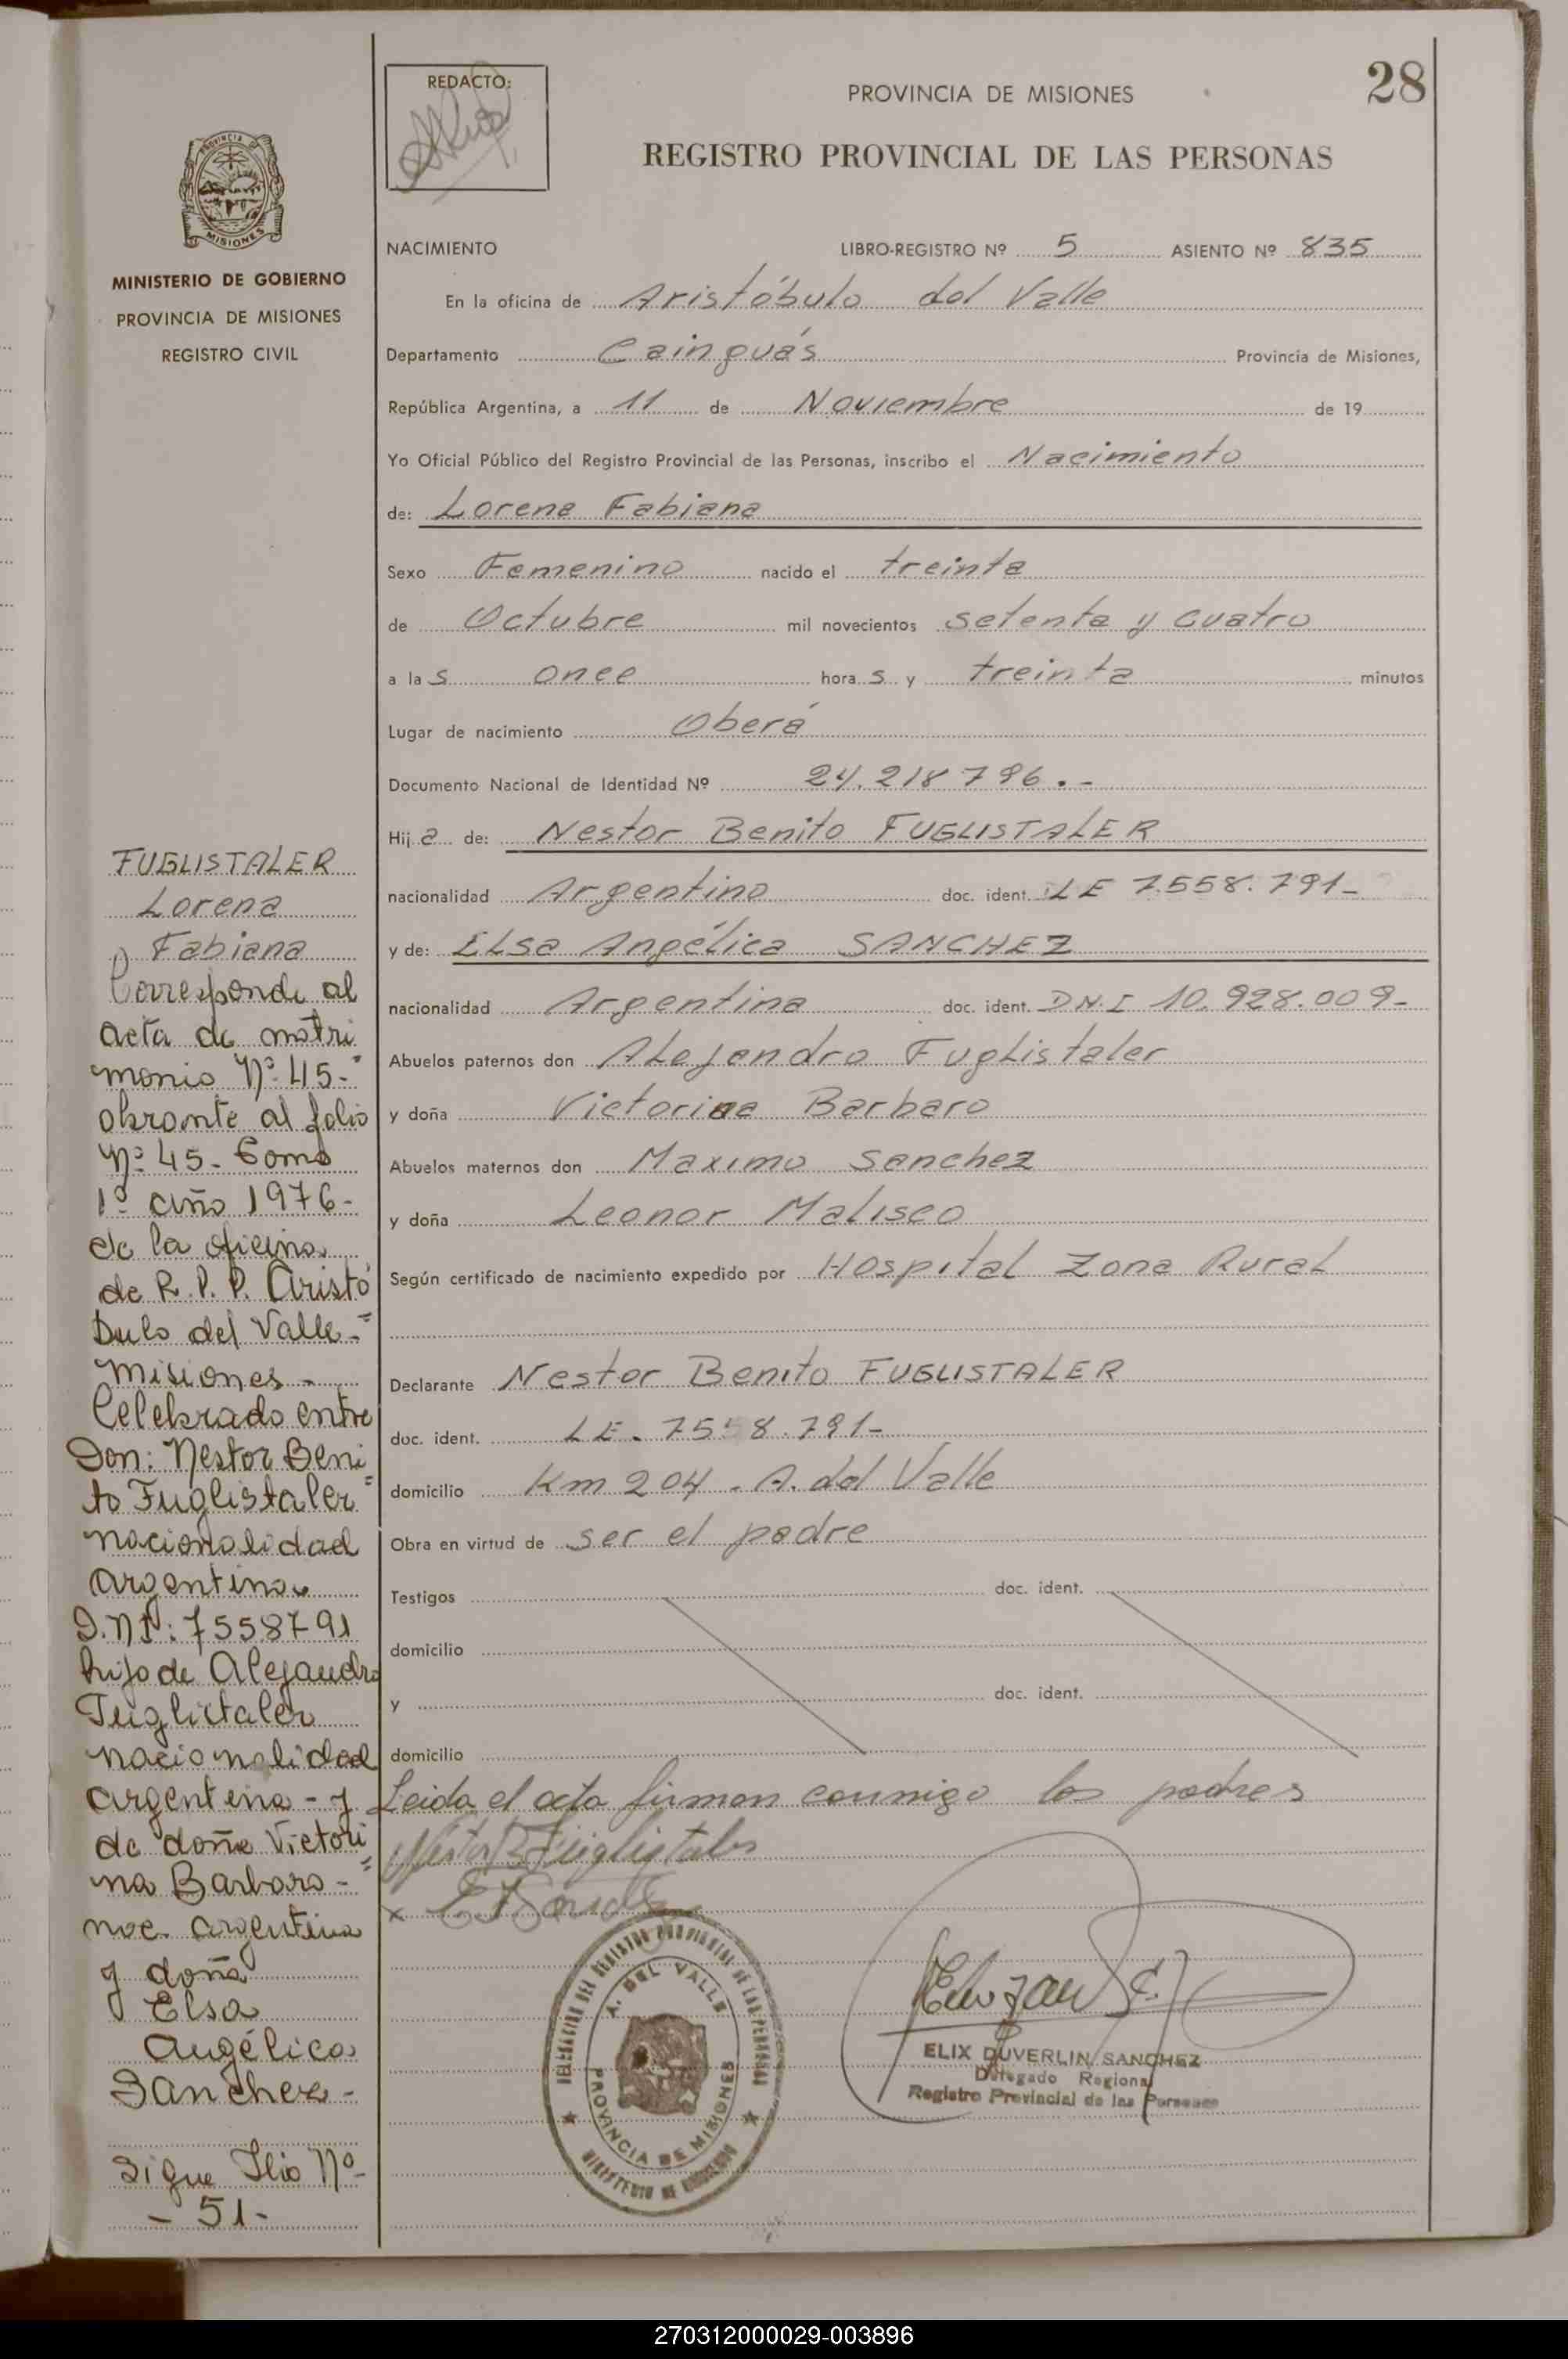 REDACTO:
PROVINCIA DE MISIONES
28
REGISTRO PROVINCIAL DE LAS PERSONAS
PROVINCIA DE
MISIONES
MINISTERIO DE GOBIERNO
PROVINCIA DE MISIONES
REGISTRO CIVIL
NACIMIENTO LIBRO-REGISTRO Nº 5 ASIENTO Nº 835
En la oficina de Aristóbulo del Valle
Departamento Cainguás Provincia de Misiones,
República Argentina, a 11 de Noviembre de 19
Yo Oficial Público del Registro Provincial de las Personas, inscribo el Nacimiento
de: Lorena Fabiana
Sexo Femenino nacido el treinta
de Octubre mil novecientos setenta y cuatro
a las once horas y treinta minutos
Lugar de nacimiento Oberá
Documento Nacional de Identidad Nº 24.218796.-
Hija de: Nestor Benito FUGLISTALER
nacionalidad Argentino doc. ident. LE 7.558.791-
y de: ELsa Angélica SANCHEZ
nacionalidad Argentina doc. ident. D.N.I 10.928.009-
Abuelos paternos don ALejandro FugListaler
y doña Victorina Barbaro
Abuelos maternos don Maximo Sanchez
y doña Leonor Maliseo
Según certificado de nacimiento expedido por Hospital Zona Rural
Declarante Nestor Benito FUGLISTALER
doc. ident. LE. 7558.791-
domicilio Km 204 - A. del Valle
Obra en virtud de ser el padre
Testigos doc. ident.
domicilio
y doc. ident.
domicilio
Leida el acta firman conmigo los padres
Nestor B Fuglistaler
x
FUGLISTALER
Lorena
Fabiana
Corresponde al
acta de matri
monio Nº 45-"
obrante al folio
Nº 45- Tomo
1º año 1976-
de la oficina
de R.P.P. Aristó
bulo del Valle-"
Misiones-
Celebrado entre
Don: Nestor Beni
to Fuglistaler"
nacionalidad
argentino
D.NI: 7558791
hijo de Alejandro
Fuglistaler
nacionalidad
argentina - y
de doña Victori
na Barbaro-"
nac. argentina
y doña
Elsa
Angélica
Sanchez-
Sigue folio Nº-
- 51-
DELEGACION DEL REGISTRO PROVINCIAL DE LAS PERSONAS
A. DEL VALLE
PROVINCIA DE MISIONES
MINISTERIO DE GOBIERNO
ELIX DUVERLIN SANCHEZ
Delegado Regional
Registro Provincial de las Personas
270312000029-003896